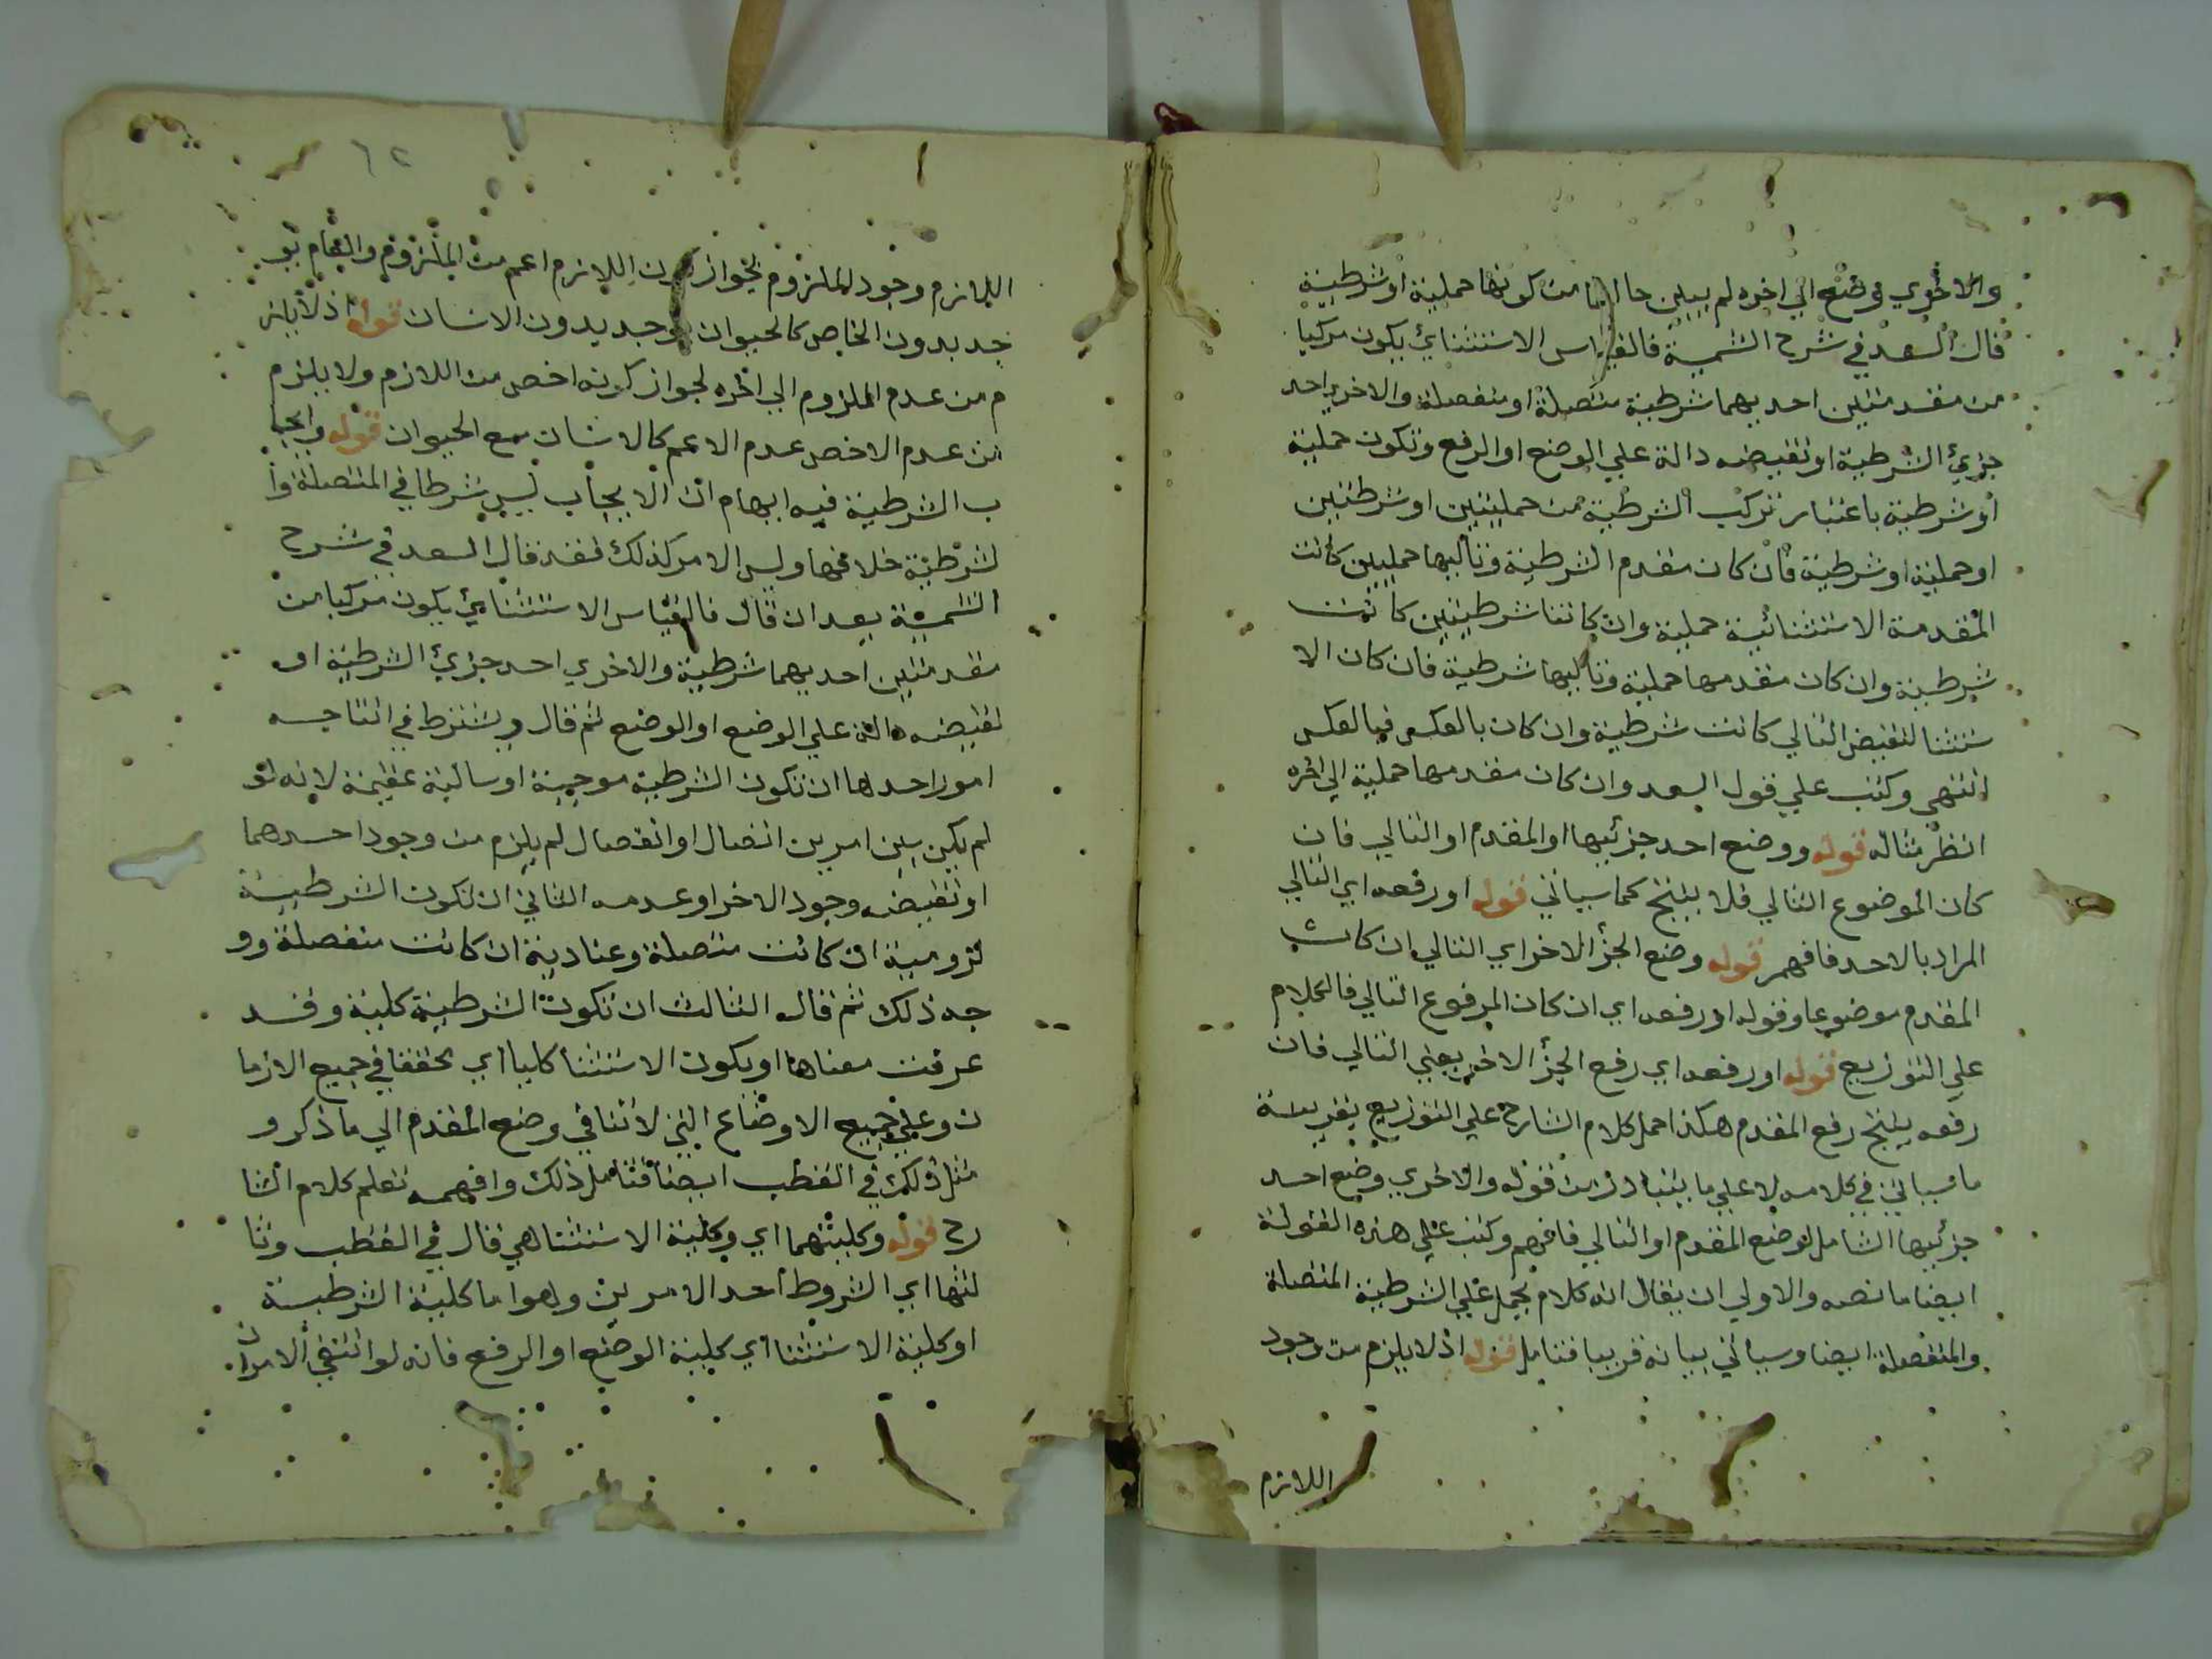 والاخري وضع الي اخره لم يبين حالها من كونها حملية او شرطية
قال السعد في شرح الشمسية فالقياس الاستثنائي يكون مركبا
من مقدمتين احديهما شرطية متصلة او منفصلة والاخري احد
جزئي الشرطية او نقيضه دالة علي الوضع او الرفع وتكون حملية
او شرطية باعتبار تركب الشرطية من حمليتين او شرطتين
او حملية او شرطية فان كان مقدم الشرطية وتاليها حمليين كانت
المقدمة الاستثنائية حملية وان كانتا شرطيتين كانت
شرطية وان كان مقدمها حملية وتاليها شرطية فان كان الا
ستثنا لنقيض التالي كانت شرطية وان كان بالعكس فبالعكس
انتهي وكتب علي قول السعد وان كان مقدمها حملية الي اخره
انظر مثاله قوله ووضع احد جزئيها او المقدم او التالي فان
كان الموضوع التالي فلا ينتج كما سياتي قوله او رفعه اي التالي
المراد بالاحد فافهم قوله وضع الجزأ الاخر اي التالي ان كان
المقدم موضوعا وقوله او رفعه اي ان كان المرفوع التالي فالكلام
علي التوزيع قوله او رفعه اي رفع الجزأ الاخر يعني التالي فان
رفعه ينتج رفع المقدم هكذا حمل كلام الشارح علي التوزيع بقرينة
ما سياتي في كلامه لا علي ما يتبادر من قوله والاخري وضع احد
جزئيها الشامل لوضع المقدم او التالي فافهم وكتب علي هذه القولة
ايضا ما نصه والاولي ان يقال انه كلام مجمل علي الشرطية المتصلة
والمنفصلة ايضا وسياتي بيانه قريبا فتامل قوله اذ لا يلزم من وجود
اللازم
٦٢
اللازم وجود الملزوم لجواز كون اللازم اعم من الملزوم والعام يو
جد بدون الخاص كالحيوان يوجد بدون الانسان قوله اذ لا يلز
م من عدم الملزوم الي اخره لجواز كونه اخص من اللازم ولا يلزم
من عدم الاخص عدم الاعم كالانسان مع الحيوان قوله وايجا
ب الشرطية فيه ايهام ان الايجاب ليس شرطا في المتصلة وا
لشرطية خلافها وليس الامر كذلك فقد قال السعد في شرح
الشمسية بعد ان قال فالقياس الاستثنائي يكون مركبا من
مقدمتين احديهما شرطية والاخري احد جزئي الشرطية او
نقيضه دالة علي الوضع او الوضع ثم قال ويشترط في انتاجه
امور احدها ان تكون الشرطية موجبة او سالبة عقيمة لانه لو
لم يكن بين امرين اتصال او انفصال لم يلزم من وجود احدهما
او نقيضه وجود الاخر او عدمه الثاني ان تكون الشرطية
لزومية ان كانت متصلة وعنادية ان كانت منفصلة وو
جه ذلك ثم قال الثالث ان تكون الشرطية كلية وقد
عرفت معناها او يكون الاستثنا كليا اي تحققا في جميع الازما
ن وعلي جميع الاوضاع التي لا تنافي وضع المقدم الي ما ذكر و
مثل ذلك في القطب ايضا فتامل ذلك وافهمه تعلم كلام الشا
رح قوله وكليتهما اي وكلية الاستثنا هي قال في القطب وثا
لثها اي الشروط احد الامرين وهو اما كلية الشرطية
او كلية الاستثنا اي كلية الوضع او الرفع فانه لو انتفي الامران